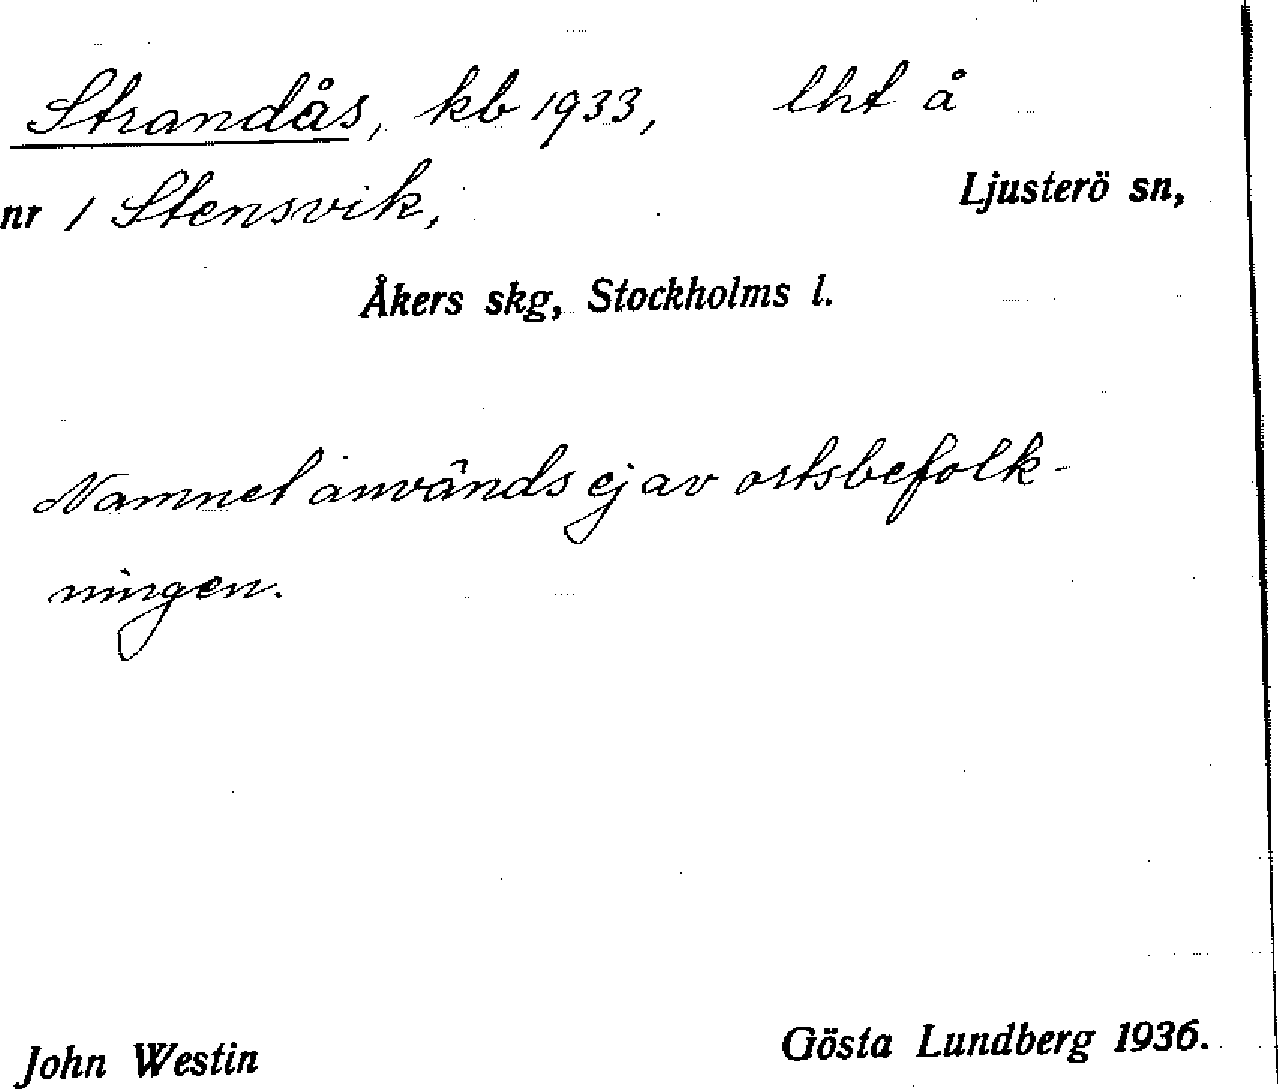 Strandås, kb 1933, lht å
nr 1 Stensvik,
Ljusterö sn,
Åkers skg, Stockholms l.
Namnet användes ej av ortsbefolk-
ningen.
John Westin
Gösta Lundberg 1936.